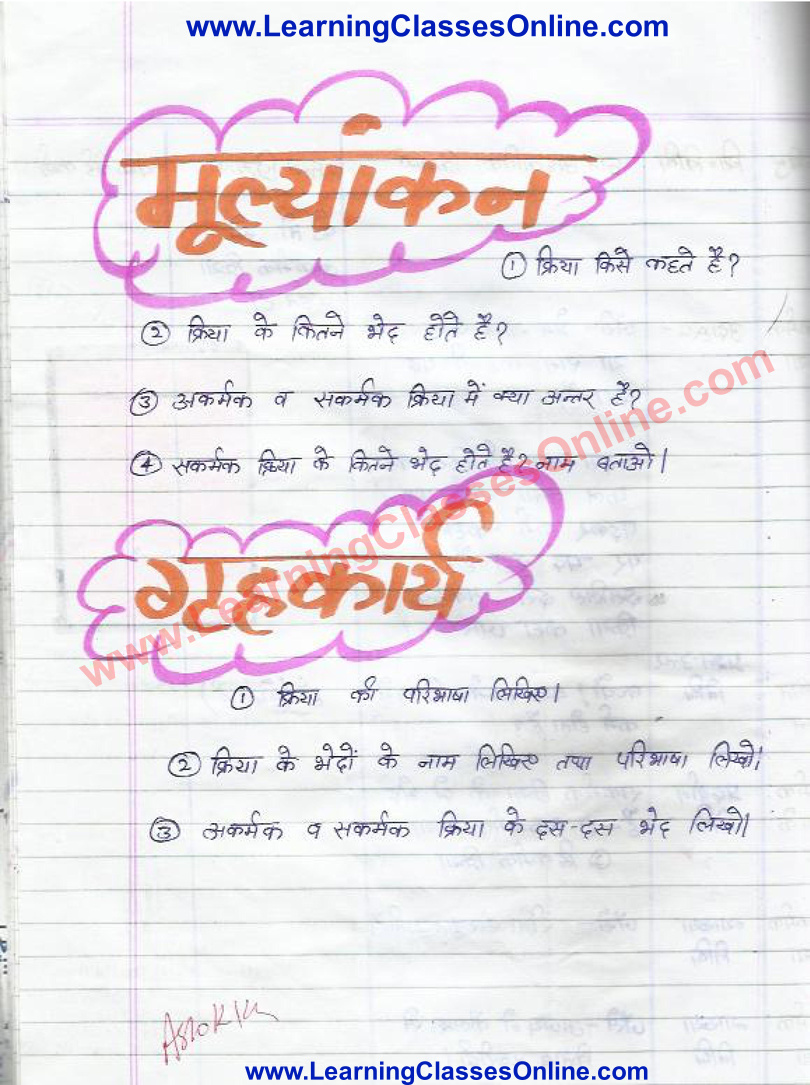 www.LearningClassesOnline.com
मूल्यांकन
① क्रिया किसे कहते है?
② क्रिया के कितने भेद होते है?
③ अकर्मक व सकर्मक क्रिया में क्या अन्तर है?
④ सकर्मक क्रिया के कितने भेद होते है? नाम बताओ।
www.LearningClassesOnline.com
गृहकार्य
① क्रिया की परिभाषा लिखिए।
② क्रिया के भेदों के नाम लिखिए तथा परिभाषा लिखो।
③ अकर्मक व सकर्मक क्रिया के दस-दस भेद लिखो।
www.LearningClassesOnline.com